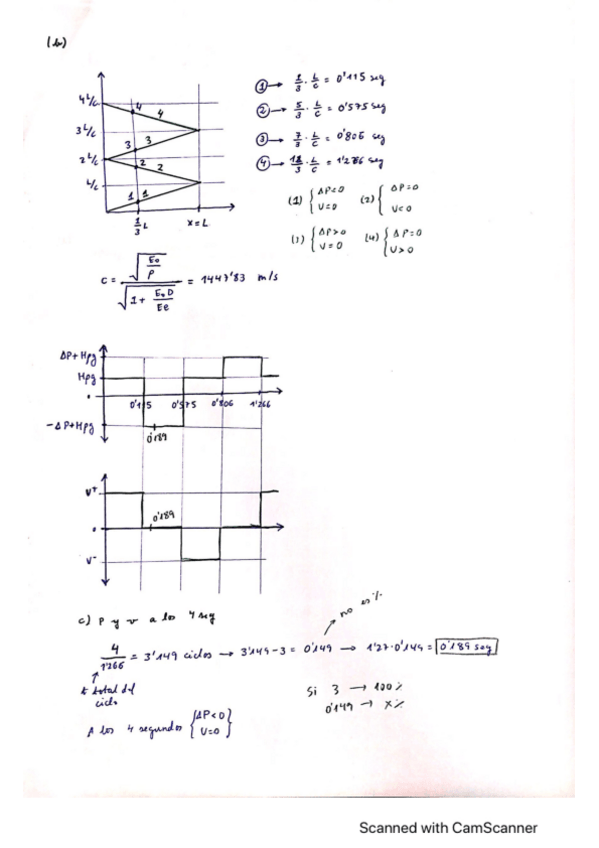 (b)
4 L/c
3 L/c
2 L/c
L/c
4
4
3
3
2
2
1
1
1/3 L
x=L
① → 1/3 · L/c = 0'115 seg
② → 5/3 · L/c = 0'575 seg
③ → 7/3 · L/c = 0'806 seg
④ → 11/3 · L/c = 1'266 seg
(1) { ΔP<0 V=0 (2) { ΔP=0 V<0
(3) { ΔP>0 V=0 (4) { ΔP=0 V>0
c = √(E₀/ρ) / √(1 + E₀D/Ee) = 1447'83 m/s
ΔP+Hρg
Hρg
0
0'115 0'575 0'806 1'266
-ΔP+Hρg
0'189
V+
0'189
0
V-
c) P y v a los 4 seg
no es %
4/1'266 = 3'149 ciclos → 3'149-3 = 0'149 → 1'27·0'149 = 0'189 seg
t total del
ciclo
Si 3 → 100%
0'149 → x%
A los 4 segundos {ΔP<0 V=0}
Scanned with CamScanner